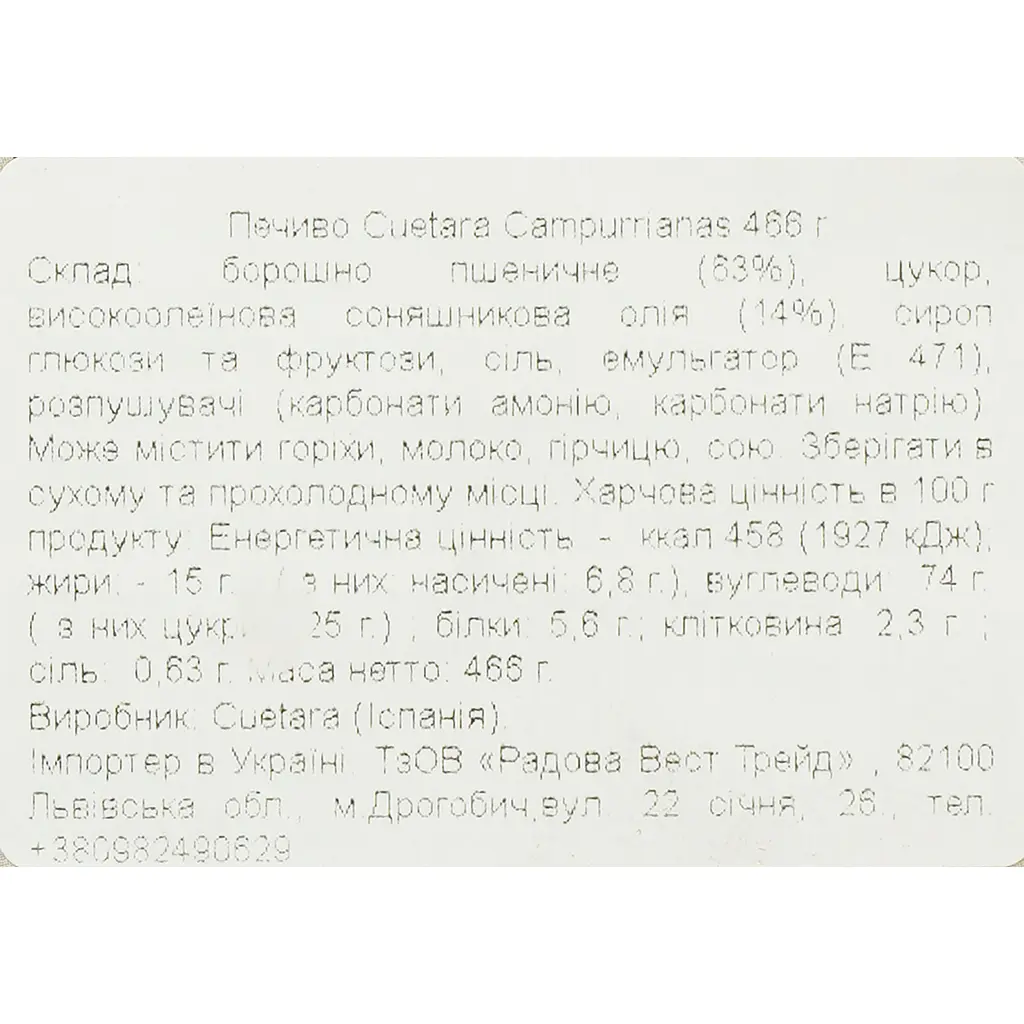 Печиво Cuetara Campurrianas 466 г
Склад: борошно пшеничне (63%), цукор,
високоолеїнова соняшникова олія (14%), сироп
глюкози та фруктози, сіль, емульгатор (Е 471),
розпушувачі (карбонати амонію, карбонати натрію)
Може містити горіхи, молоко, гірчицю, сою. Зберігати в
сухому та прохолодному місці. Харчова цінність в 100 г
продукту: Енергетична цінність - ккал 458 (1927 кДж);
жири: - 15 г. ( з них насичені: 6,8 г.), вуглеводи: 74 г.
( з них 25 г.) ; білки: 5,6 г.; клітковина 2,3 г. ;
сіль: 0,63 г. Маса нетто: 466 г.
Виробник: Cuetara (Іспанія).
Імпортер в Україні: ТзОВ «Радова Вест Трейд» , 82100
Львівська обл., м.Дрогобич,вул. 22 січня, 26., тел.
+380982490629